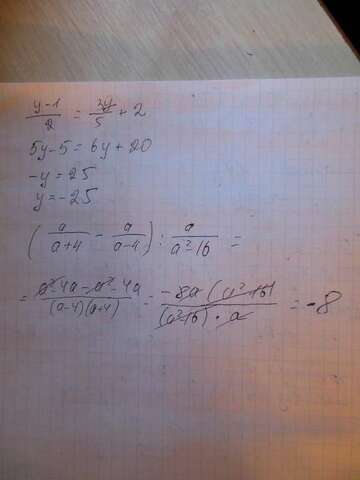 (y-1)/2 = 3y/5 + 2
5y-5=6y+20
-y=25
y=-25
(a/(a+4) - a/(a-4)) : a/(a²-16) =
= (a²-4a-a²-4a)/((a-4)(a+4)) = (-8a(a²-16))/((a²-16)·a) = -8